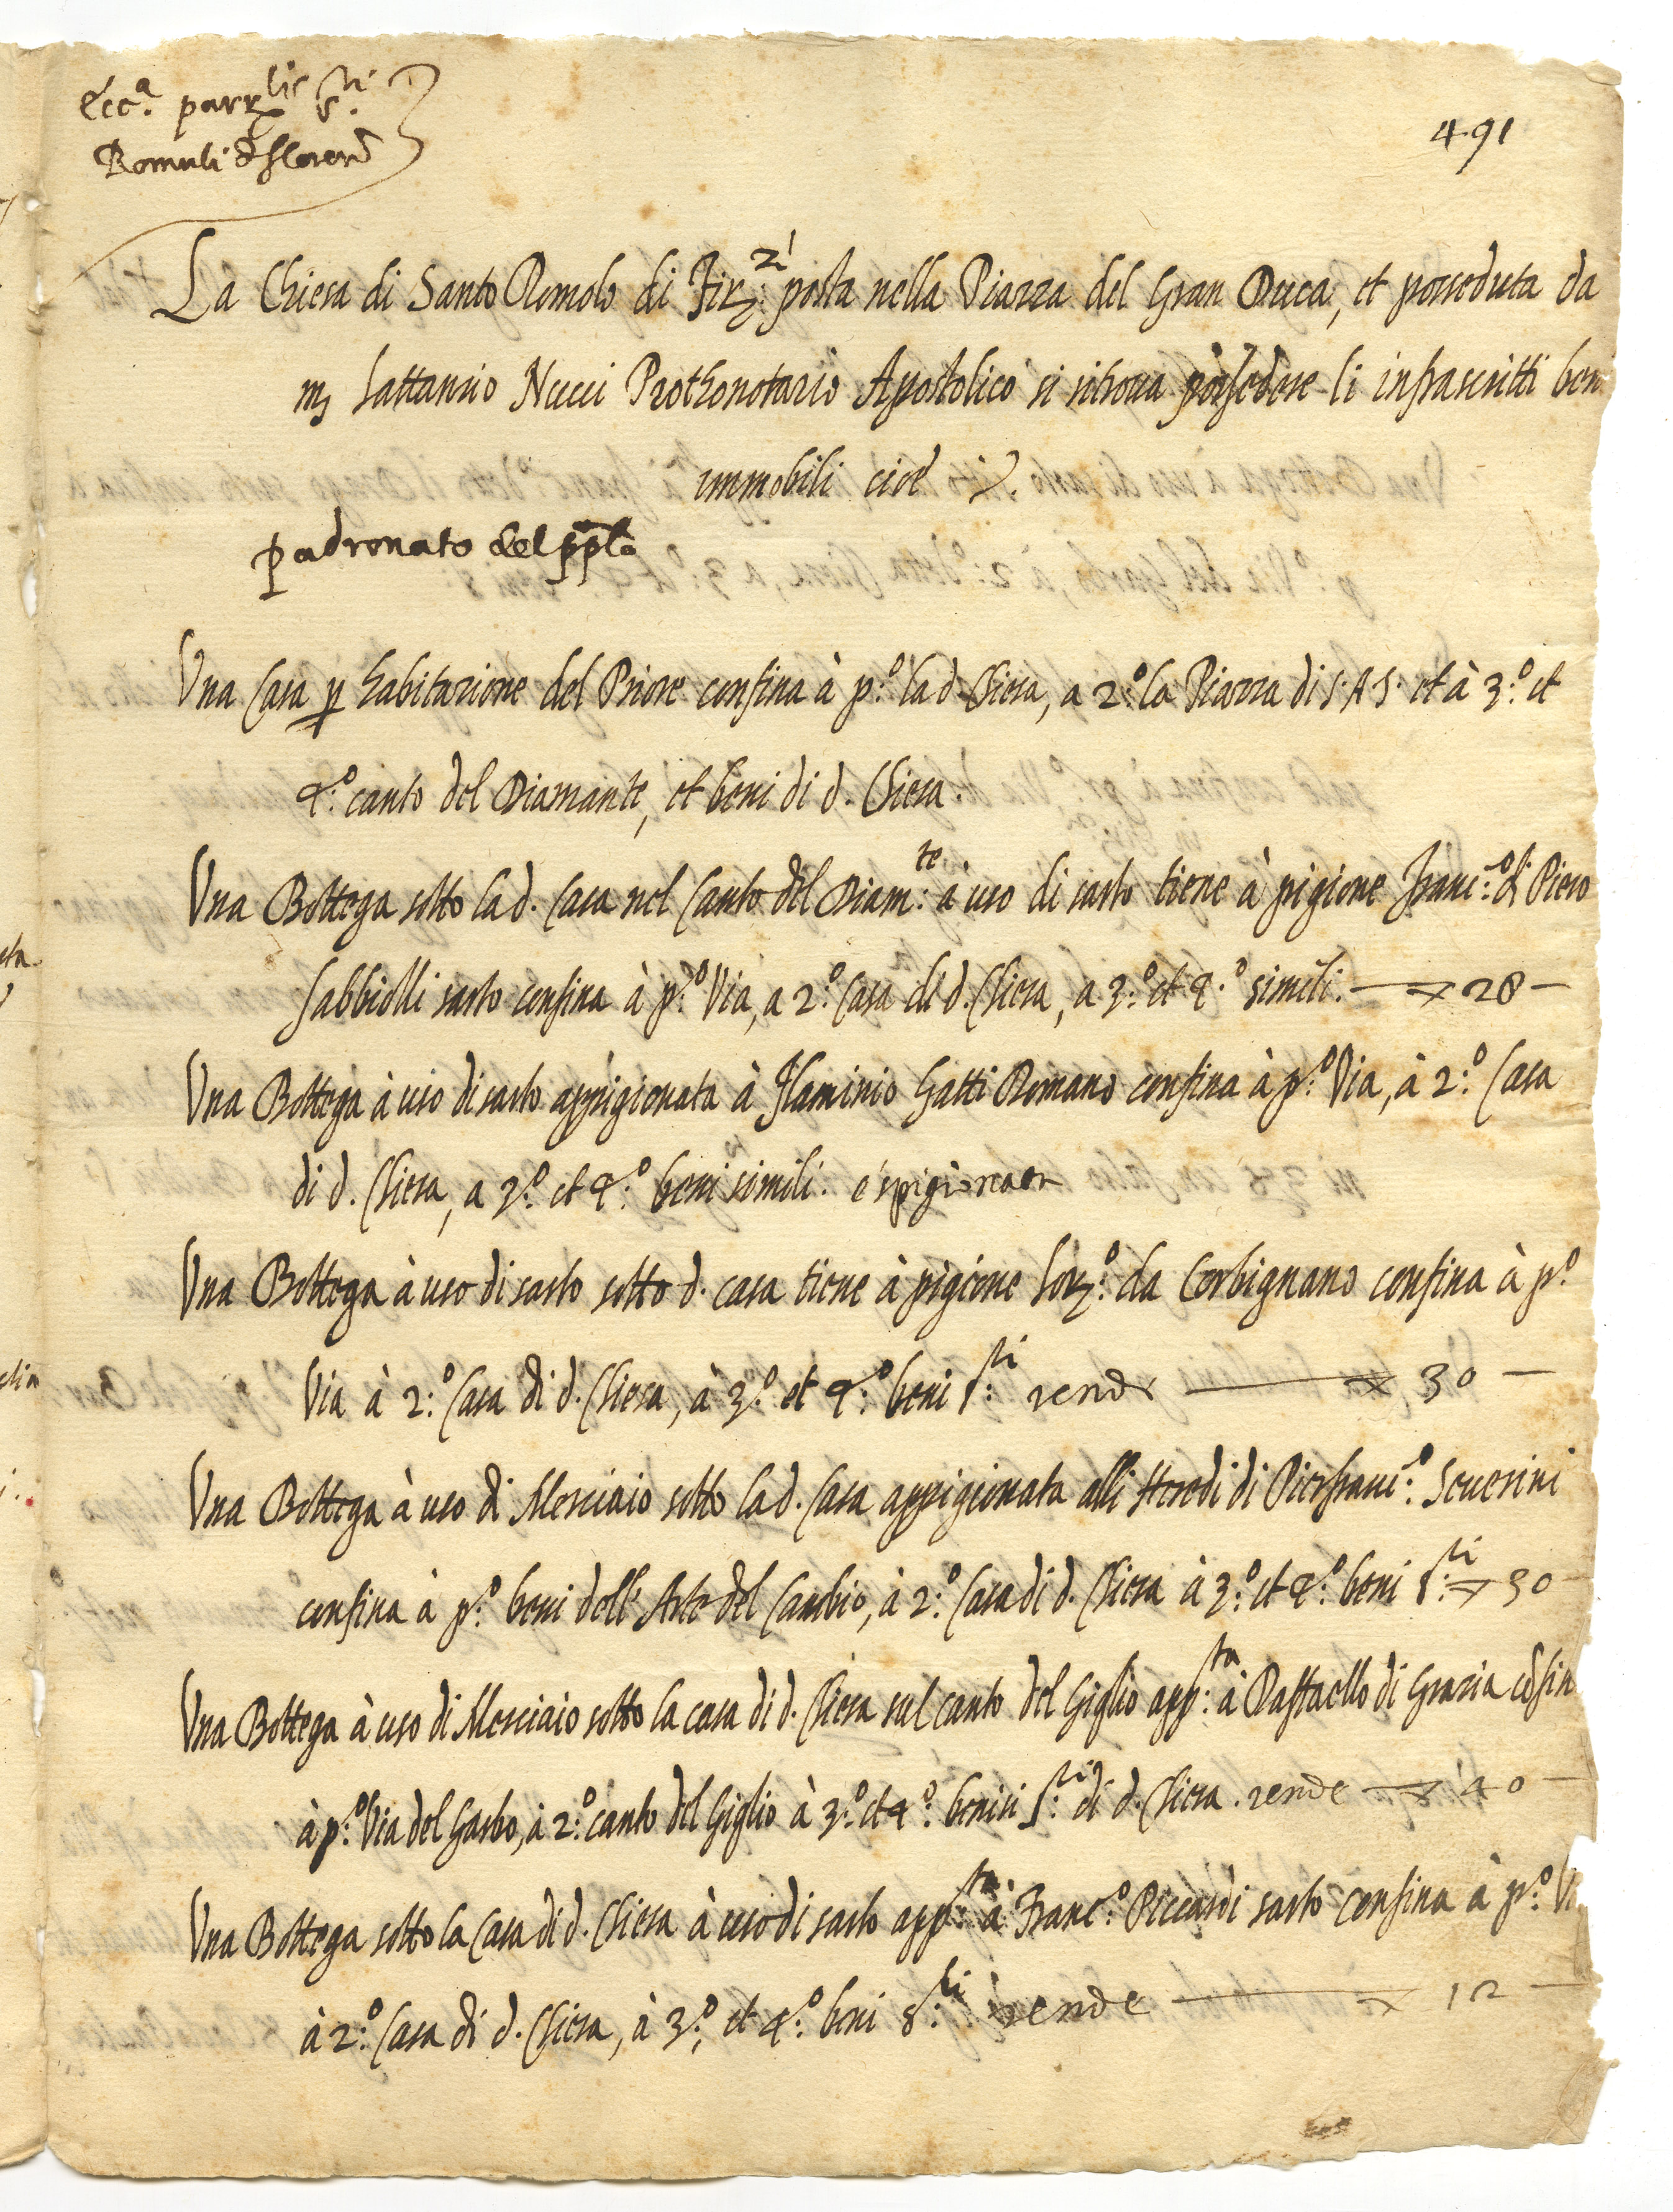 Ecc.ª parr.lis S.ti
Romuli de floren.
491
La Chiesa di Santo Romolo di Firz:zi posta nella Piazza del Gran Duca, et posseduta da
m. Lattanzio Nucci Prothonotario Apostolico si ritrova possedere li infrascritti beni
immobili cioè
padronato del pplo
Una Casa p habitazione del Priore confina à p:º la d. Chiesa, a 2:º la Piazza di S. A. S. et à 3:º et
4:º canto del Diamante, et beni di d. Chiesa.
Una Bottega sotto la d. Casa nel Canto del Diam:te à uso di sarto tiene à pigione Franc:º di Piero
sarto confina à p:º Via, a 2:º Casa di d. Chiesa, a 3:º et 4:º simili. — 28 —
Una Bottega à uso di sarto appigionata à Flaminio Gatti Romano confina à p:º Via, à 2:º Casa
di d. Chiesa, a 3:º et 4:º beni simili. è spigionata
Una Bottega à uso di sarto sotto d. casa tiene à pigione Lorz:º da Corbignano confina à p:º
Via à 2:º Casa di d. Chiesa, à 3:º et 4:º beni s:ti rende — 30 —
Una Bottega à uso di Merciaio sotto la d. Casa appigionata alli Heredi di Pierfranc:º Severini
confina à p:º beni dell'Arte del Cambio, à 2:º Casa di d. Chiesa à 3:º et 4:º beni s:ti 30 —
Una Bottega à uso di Merciaio sotto la casa di d. Chiesa sul canto del Giglio app:ta à Raffaello di Grazia cõfin
à p:º Via del Garbo, à 2:º canto del Giglio à 3:º et 4:º beni s:ti di d. Chiesa. rende 40 —
Una Bottega sotto la Casa di d. Chiesa à uso di sarto app:ta à Franc:º Riccardi sarto confina à p:º Vi
à 2:º Casa di d. Chiesa, à 3:º et 4:º beni s:ti rende — 12 —